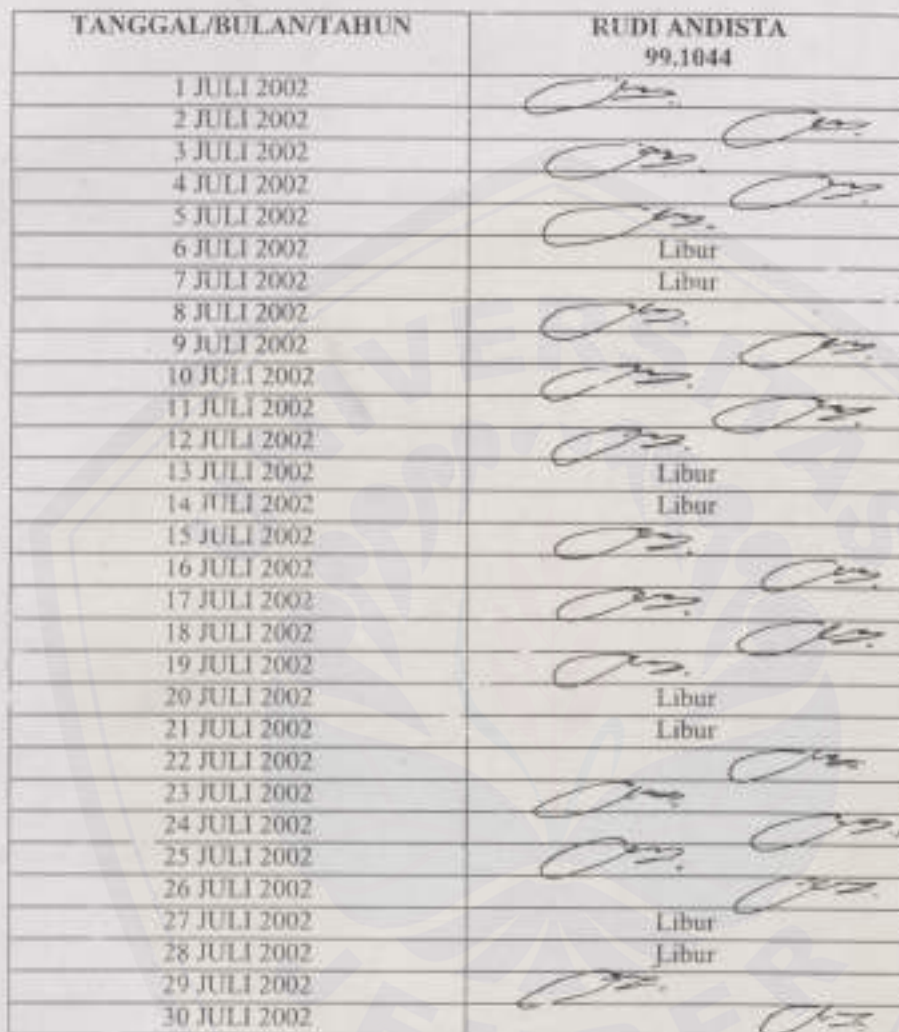 TANGGAL/BULAN/TAHUN RUDI ANDISTA
99.1044
1 JULI 2002
2 JULI 2002
3 JULI 2002
4 JULI 2002
5 JULI 2002
6 JULI 2002 Libur
7 JULI 2002 Libur
8 JULI 2002
9 JULI 2002
10 JULI 2002
11 JULI 2002
12 JULI 2002
13 JULI 2002 Libur
14 JULI 2002 Libur
15 JULI 2002
16 JULI 2002
17 JULI 2002
18 JULI 2002
19 JULI 2002
20 JULI 2002 Libur
21 JULI 2002 Libur
22 JULI 2002
23 JULI 2002
24 JULI 2002
25 JULI 2002
26 JULI 2002
27 JULI 2002 Libur
28 JULI 2002 Libur
29 JULI 2002
30 JULI 2002